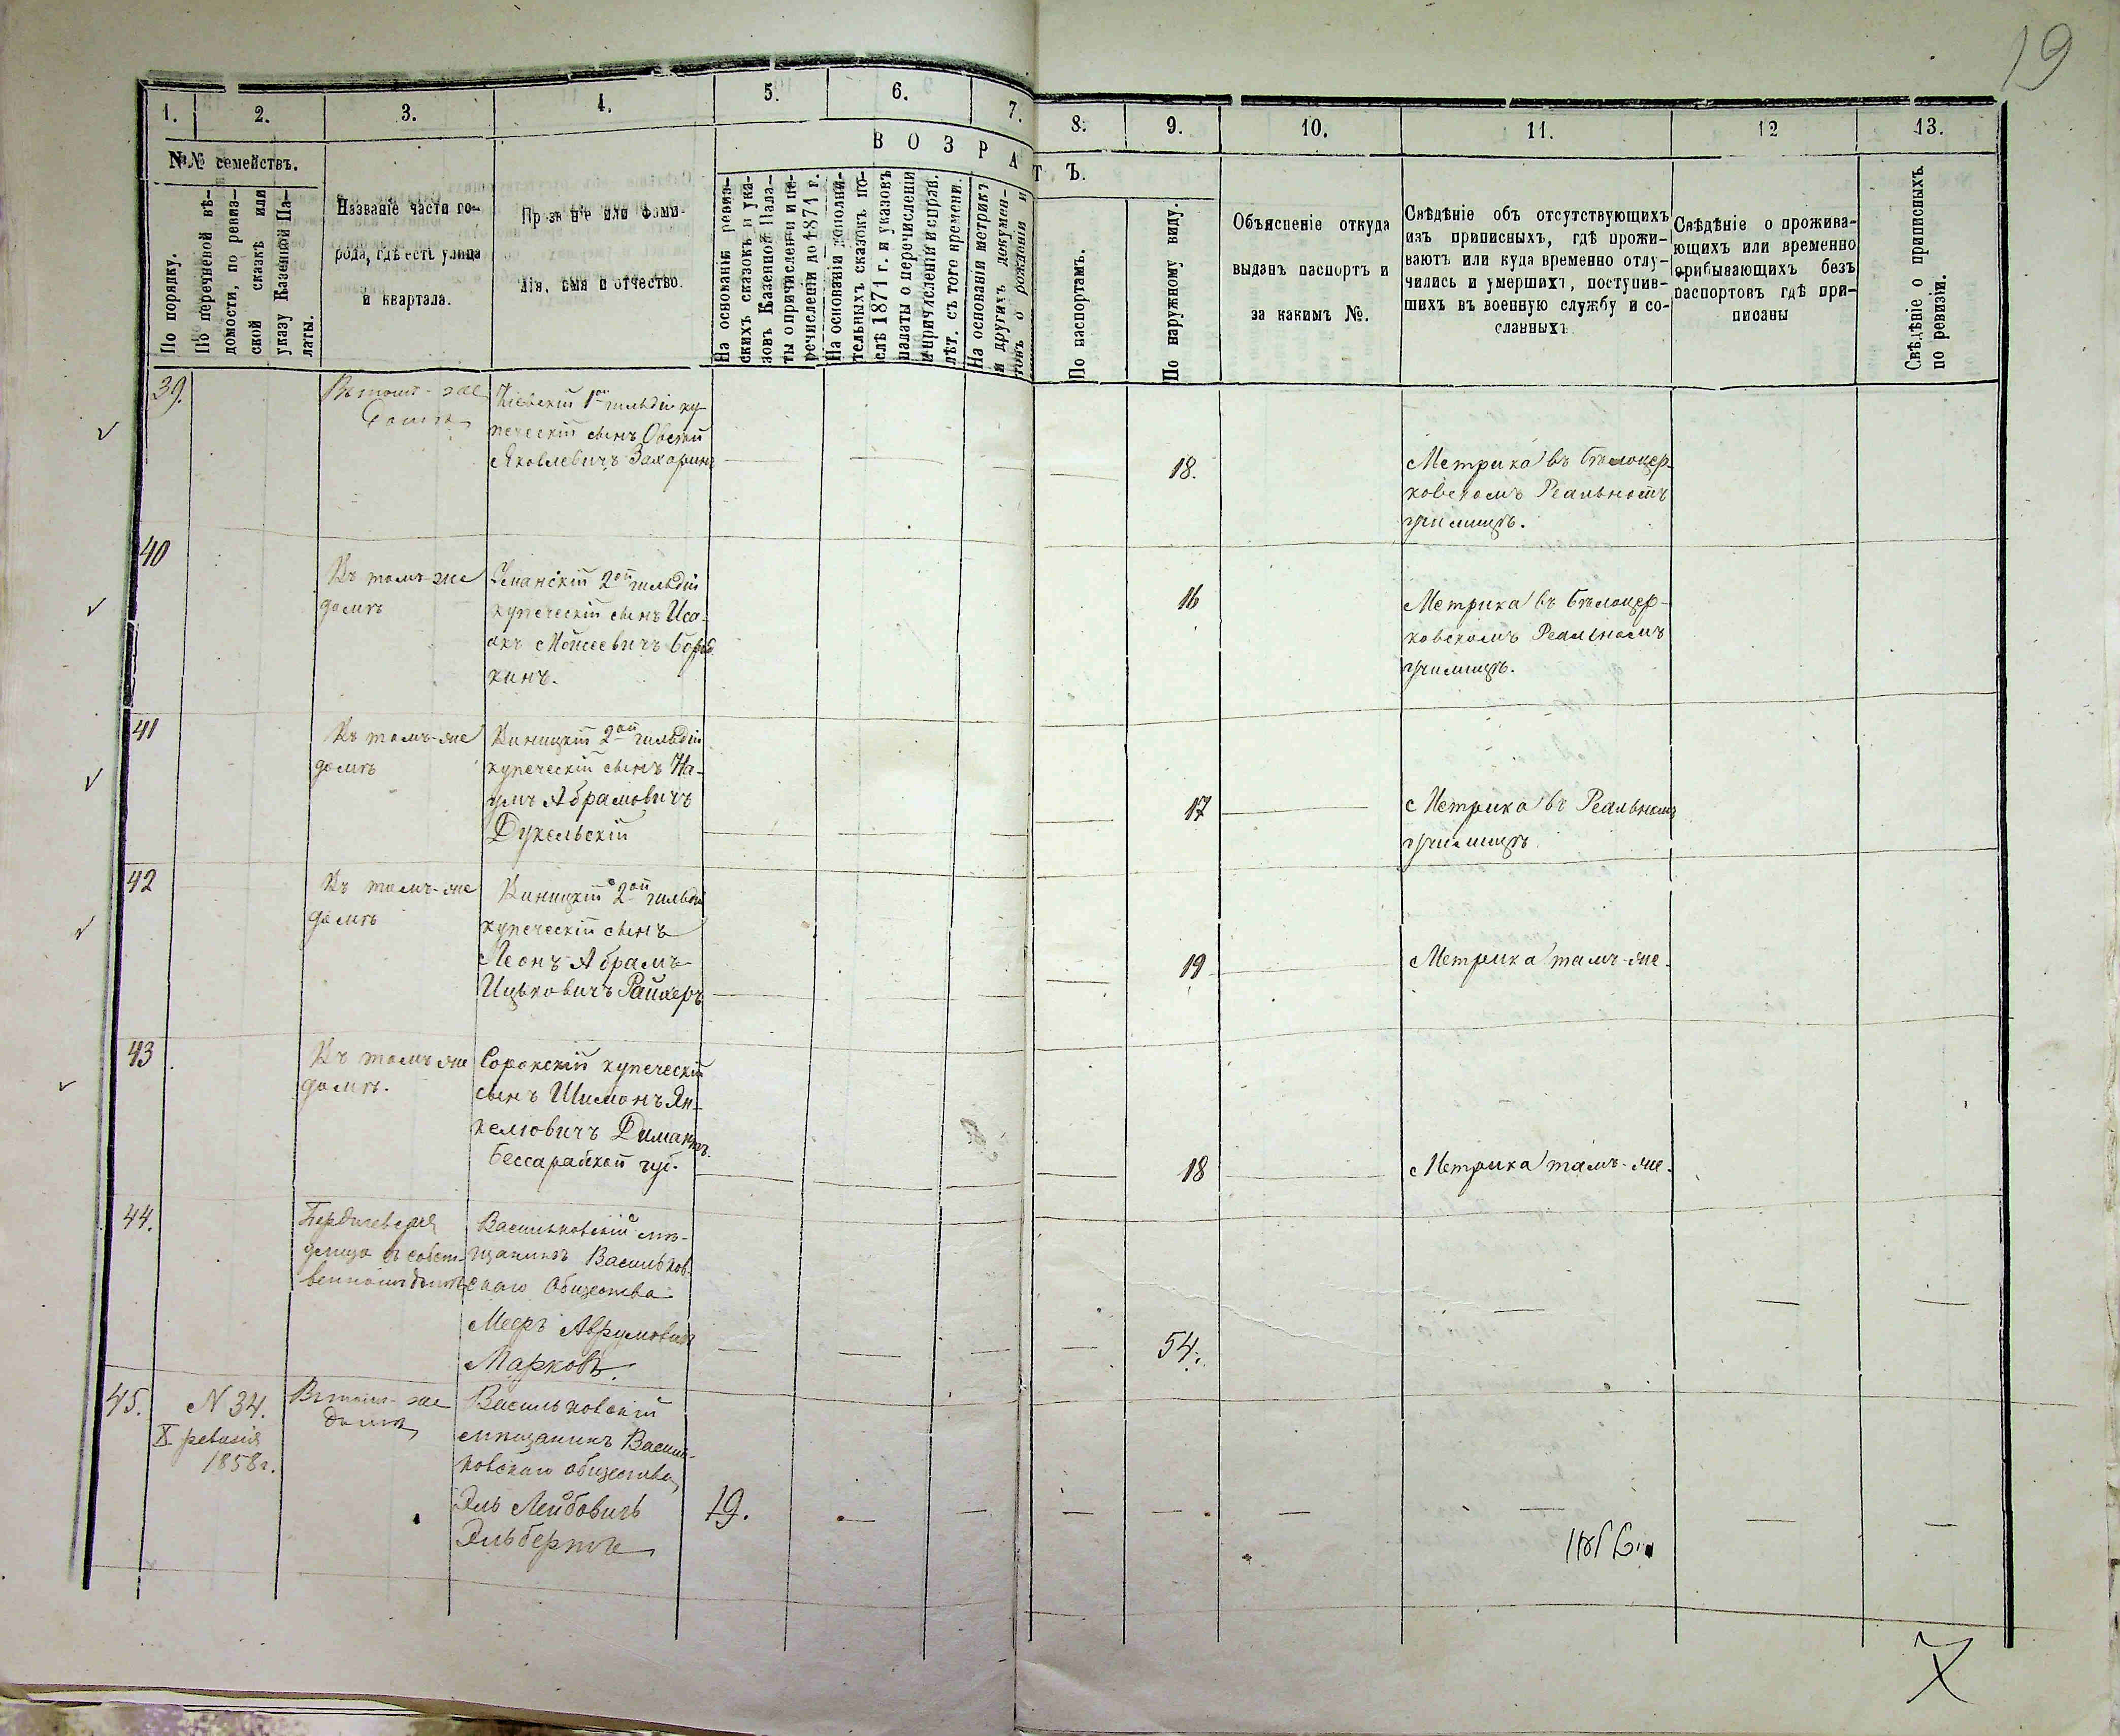 19
1.
2.
3.
4.
5.
6.
7.
8.
9.
10.
11.
12
13.
№№ семействъ.
По порядку.
По перечневой вѣ-
домости, по ревиз-
ской сказкѣ или
указу Казенной Па-
латы.
Названіе части го-
рода, гдѣ есть улица
и квартала.
Прозваніе или фами-
лія, имя и отчество.
В О З Р А Т Ъ.
На основаніи ревиз-
скихъ сказокъ и ука-
зовъ Казенной Пала-
ты о причисленіи и пе-
речисленіи до 1871 г.
На основаніи дополни-
тельныхъ сказокъ по-
слѣ 1871 г. и указовъ
палаты о перечисленіи
и причисленіи исправ.
лѣт. съ того времени.
На основаніи метрикъ
и другихъ докумен-
товъ о рожденіи и
По паспортамъ.
По наружному виду.
Объясненіе откуда
выданъ паспортъ и
за какимъ №.
Свѣдѣніе объ отсутствующихъ
изъ приписныхъ, гдѣ прожи-
ваютъ или куда временно отлу-
чились и умершихъ, поступив-
шихъ въ военную службу и со-
сланныхъ.
Свѣдѣніе о прожива-
ющихъ или временно
прибывающихъ безъ
паспортовъ гдѣ при-
писаны
Свѣдѣніе о приписныхъ
по ревизіи.
39.
Въ томъ-же
домѣ
Кіевскій 1ой гильдіи ку-
печескій сынъ Овсѣй
Яковлевичъ Захаринъ
18.
Метрика въ Бѣлоцер-
ковскомъ Реальномъ
училищѣ.
40
Въ томъ-же
домѣ
Уманскій 2ой гильдіи
купеческій сынъ Иса-
акъ Мойсеевичъ
кинъ.
16
Метрика въ Бѣлоцер-
ковскомъ Реальномъ
училищѣ.
41
Въ томъ-же
домѣ
Виницкій 2ой гильдіи
купеческій сынъ На-
умъ Абрамовичъ
Дукельскій
17
Метрика въ Реальномъ
училищѣ
42
Въ томъ-же
домѣ
Виницкій 2ой гильдіи
купеческій сынъ
Леонъ-Абрамъ
Ицьковичъ Райхеръ
19
Метрика тамъ-же.
43
Въ томъ же
домѣ.
Сорокскій купеческій
сынъ Шимонъ Ян-
келювичъ Димантъ.
Бессарайской губ.
18
Метрика тамъ-же.
44.
Бердичевская
улица въ собст-
венномъ домѣ
Васильковскій мѣ-
щанинъ Васильков-
скаго Общества
Мееръ Аврумовичъ
Марковъ.
54.
45.
N 34.
X ревизія
1858 г.
Въ томъ-же
домѣ
Васильковскій
мѣщанинъ Василь-
ковскаго общества
Эль Лейбовичъ
Эльбертъ
19.